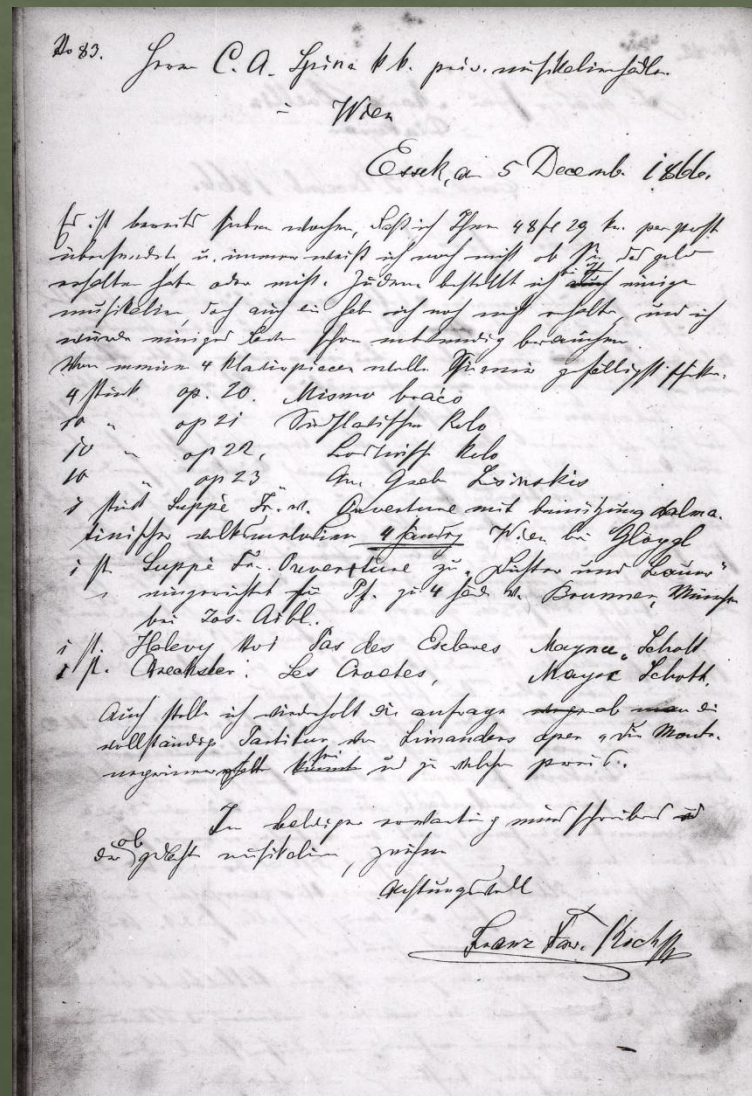 No 83.
Herrn C. A. Spina k k. priv. musikalienhändler
in Wien
Essek, am 5 Decemb. 1866.
Es ist bereits sieben wochen, daß ich Ihnen 48 fl 29 kr. per post
übersendete u. immer weiß ich noch nicht ob Sie das geld
erhalten habe oder nicht. Zudem bestellt ich einige
musikalien, doch auch die hab ich noch nicht erhalten, und ich
würde einiges davon schon nothwendig brauchen.
Von meinen 4 Klavierpiecen wolle Sie mir gefälligst schicken.
4 stück op. 20. Mismo braćo
10 " op 21 Südslavischer Kolo
10 " op 22, Kolo
10 " op 23 Am Grab Lisinskis
1 stück Suppè Fr. v. Ouverture mit benützung dalma-
tinischer volksmelodien 4 händig Wien bei Glöggl
1 st. Suppè Fr. Ouverture zu "
eingerichtet für Pf. zu 4 händ. v. Brunner, München
bei Jos. Aibl.
1 st. Halevy Pas des Esclaves Maynz, Schott
1 st. Les Croates, Maynz Schott.
Auch stelle ich wiederholt die anfrage ob man die
vollständige Partitur von Limnanders oper "die Monte-
negriner und zu welchen preis.
In baldiger erwartung eines schreibens
der ob gedachten musikalien, zeichne
Achtungsvoll
Franz Xav. Kuhač